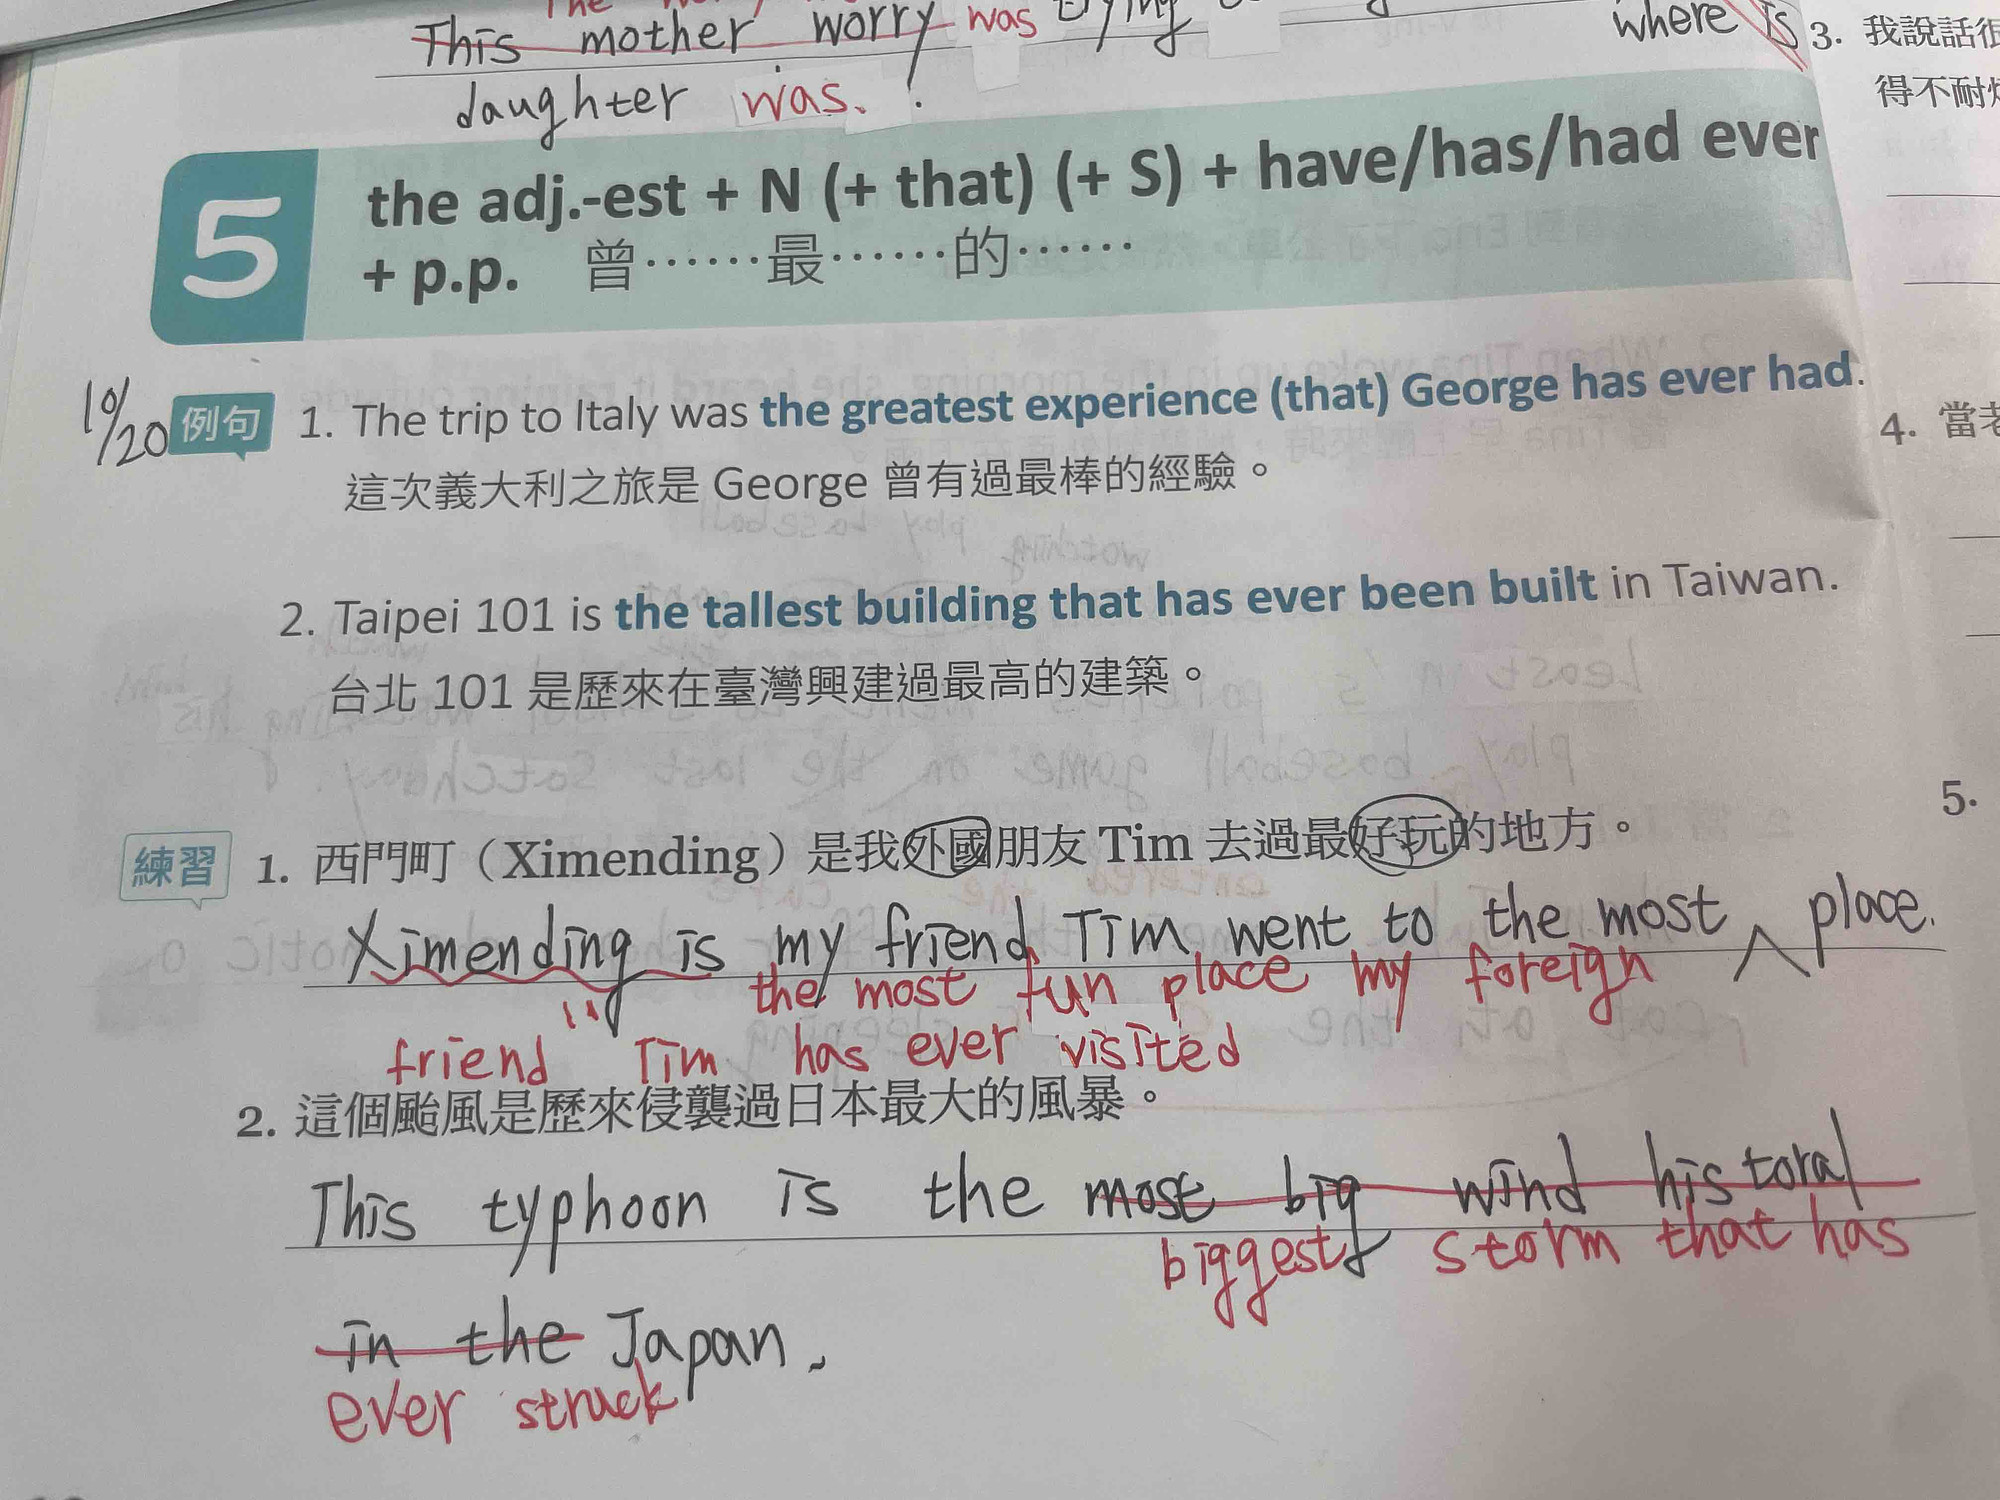 The
This mother worry was trying
where is
daughter was.
3. 我說話很
得不耐煩
5
the adj.-est + N (+ that) (+ S) + have/has/had ever
+ p.p. 曾……最……的……
10/20
例句 1. The trip to Italy was the greatest experience (that) George has ever had.
這次義大利之旅是 George 曾有過最棒的經驗。
4. 當老
2. Taipei 101 is the tallest building that has ever been built in Taiwan.
台北 101 是歷來在臺灣興建過最高的建築。
5.
練習 1. 西門町（Ximending）是我外國朋友 Tim 去過最好玩的地方。
Ximending is my friend Tim went to the most place.
the most fun place my foreign
friend Tim has ever visited
2. 這個颱風是歷來侵襲過日本最大的風暴。
This typhoon is the most big wind historal
biggest storm that has
in the Japan.
ever struck